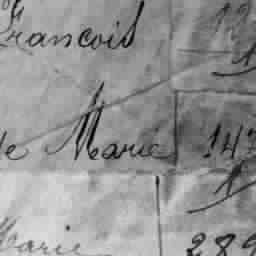 François 12
1
de Marie 147
1
Marie 289